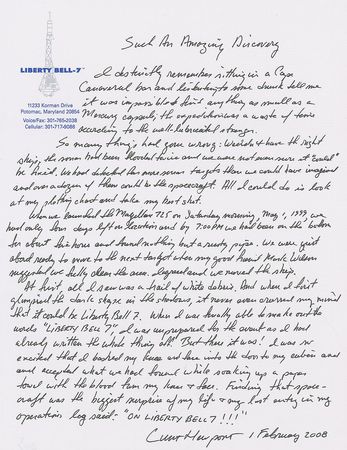 Such An Amazing Discovery
LIBERTY BELL-7
11233 Korman Drive
Potomac, Maryland 20854
Voice/Fax: 301-765-2038
Cellular: 301-717-9088
I distinctly remember sitting in a Cape
Canaveral bar and listening to some drunk tell me
it was impossible to find anything as small as a
Mercury capsule, the expedition was a waste of time
according to the well-lubricated stranger.
So many things had gone wrong: We didn't have the right
ship, the sonar had been flooded twice and we were not even sure it "worked"
he said. We had detected far more sonar targets than we could have imagined
and over a dozen of them could be the spacecraft. All I could do is look
at my plotting chart and take my best shot.
When we launched the Magellan 725 on Saturday morning, May 1, 1999 we
had only four days left on location and by 7:00PM we had been on the bottom
for about five hours and found nothing but a rusty pipe. We were just
about ready to move to the next target when my good friend Mark Wilson
suggested we fully clear the area. I agreed and we moved the ship.
At first, all I saw was a trail of white debris. And when I first
glimpsed the dark shape in the shadows, it never even crossed my mind
that it could be Liberty Bell 7. When I was finally able to make out the
words "LIBERTY BELL 7", I was unprepared for the event as I had
already written the whole thing off. But there it was! I was so
excited that I bashed my knee and face into the door to my cabin and
and accepted what we had found while soaking up a paper
towel with the blood from my knee & face. Finding that space-
craft was the biggest surprise of my life & my last entry in my
operations log said: "ON LIBERTY BELL 7!!!"
Curt Newport 1 February 2008